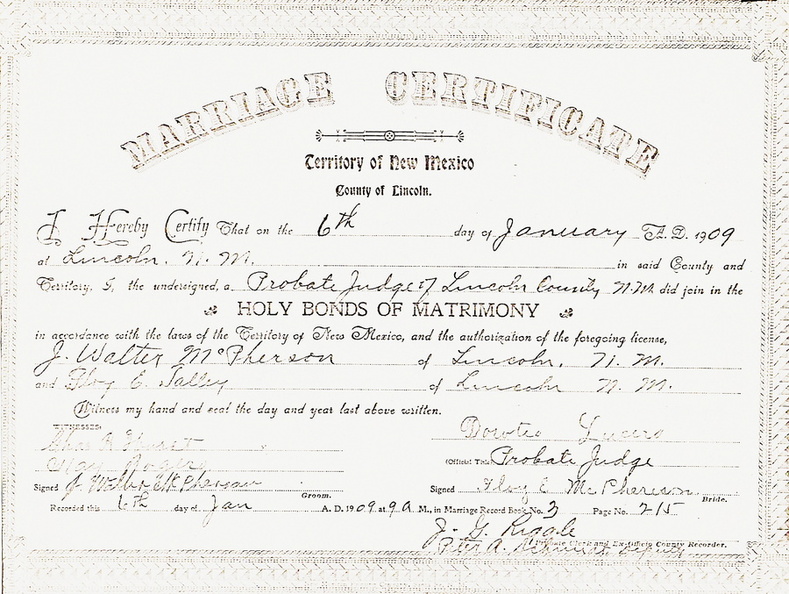 MARRIAGE CERTIFICATE
Territory of New Mexico
County of Lincoln.
I Hereby Certify That on the 6th day of January A.D. 1909
at Lincoln. N. M. in said County and
Territory, I, the undersigned, a Probate Judge of Lincoln County N.M. did join in the
HOLY BONDS OF MATRIMONY
in accordance with the laws of the Territory of New Mexico, and the authorization of the foregoing license,
J. Walter McPherson of Lincoln, N. M.
and Floy E. Talley of Lincoln N. M.
Witness my hand and seal the day and year last above written.
WITNESSES:
Lucero
(Official Title) Probate Judge
Signed J. Walter McPherson Groom.
Signed Floy E McPherson Bride.
Recorded this 6th day of Jan A. D. 1909 at 9 A. M., in Marriage Record Book No. 3 Page No. 215
J. G. Riggle
Probate Clerk and Ex-Officio County Recorder.
Peter A. Deputy